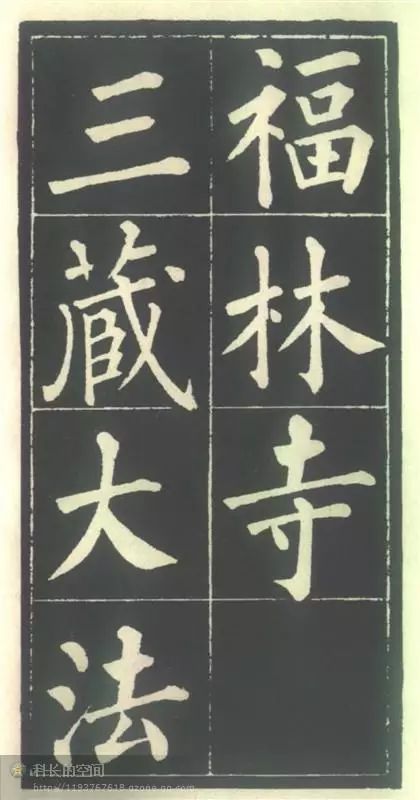 福林寺
三藏大法
科长的空间
http://1193767618.qzone.qq.com